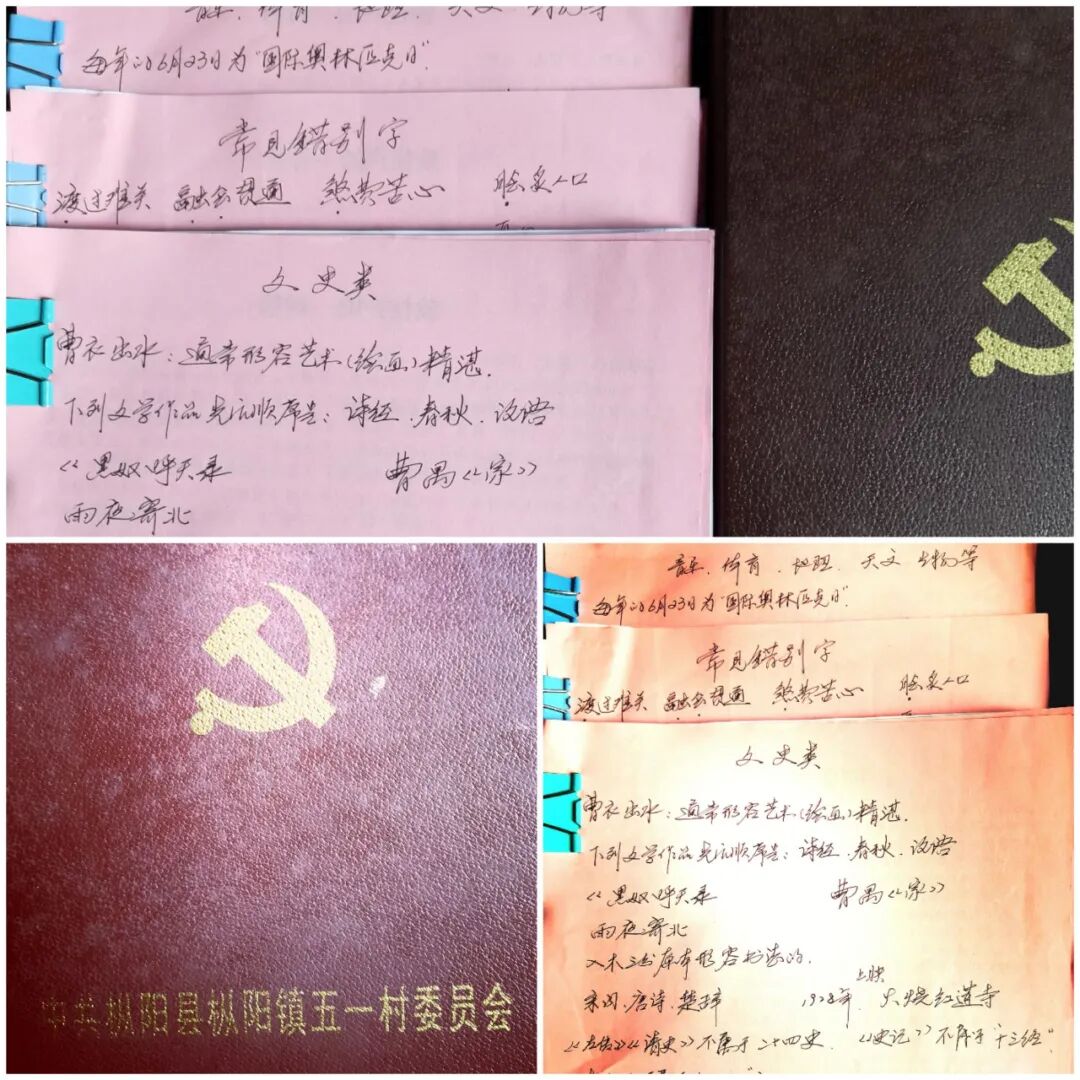 音乐、体育、地理、天文、生物等
每年的6月23日为"国际奥林匹克日".
常见错别字
渡过难关 融会贯通 煞费苦心 脍炙人口
文史类
曹衣出水：通常形容艺术(绘画)精湛.
下列文学作品先后顺序是：诗经、春秋、汉语
《黑奴呼天录 曹禺《家》
雨夜寄北
中共枞阳县枞阳镇五一村委员会
音乐、体育、地理、天文 生物等
每年的6月23日为"国际奥林匹克日".
常见错别字
渡过难关 融会贯通 煞费苦心 脍炙人口
文史类
曹衣出水：通常形容艺术(绘画)精湛.
下列文学作品先后顺序是：诗经、春秋、汉语
《黑奴呼天录 曹禺《家》
雨夜寄北
入木三分原本形容书法的.
上映
宋词、唐诗、楚辞 1928年 火烧红莲寺
《左传》《清史》不属于二十四史. 《史记》不属于"十三经".